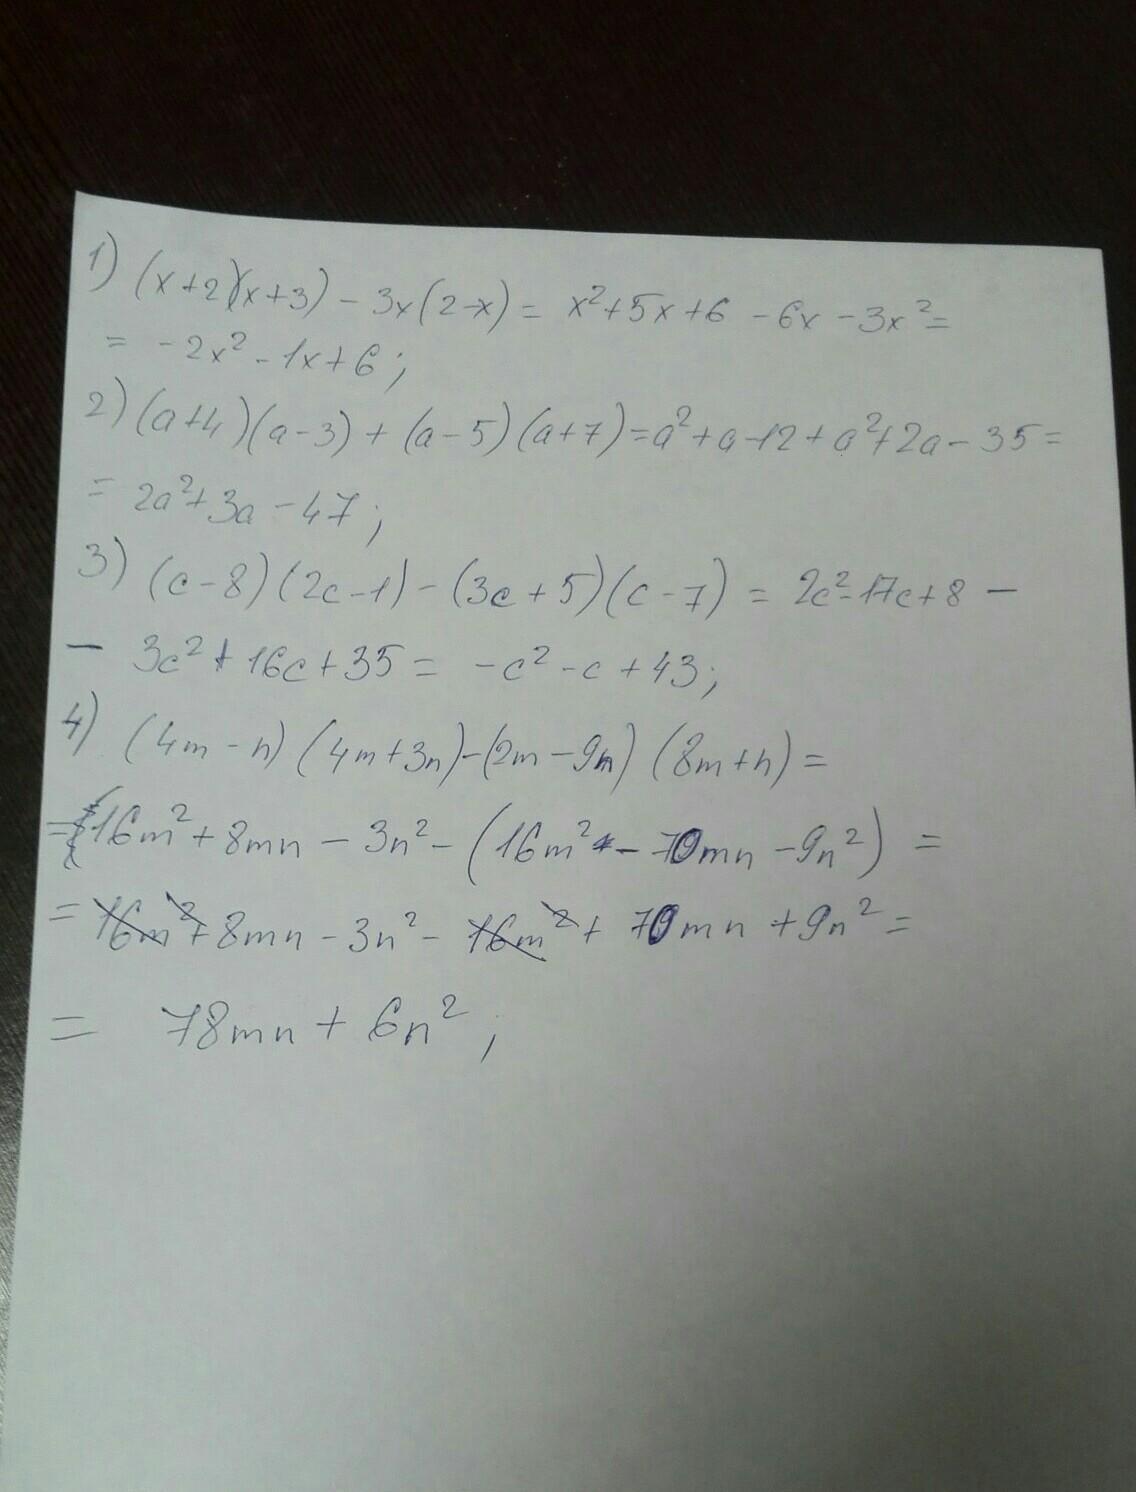 1) (x+2)(x+3) - 3x(2-x) = x²+5x+6 - 6x - 3x² =
= -2x² - 1x + 6;
2) (a+4)(a-3) + (a-5)(a+7) = a²+a-12+a²+2a-35 =
= 2a²+3a-47;
3) (c-8)(2c-1) - (3c+5)(c-7) = 2c²-17c+8 -
- 3c²+16c+35 = -c²-c+43;
4) (4m-n)(4m+3n)-(2m-9n)(8m+n) =
= 16m²+8mn-3n²-(16m²-70mn-9n²) =
= 16m²+8mn-3n²-16m²+70mn+9n² =
= 78mn+6n²;